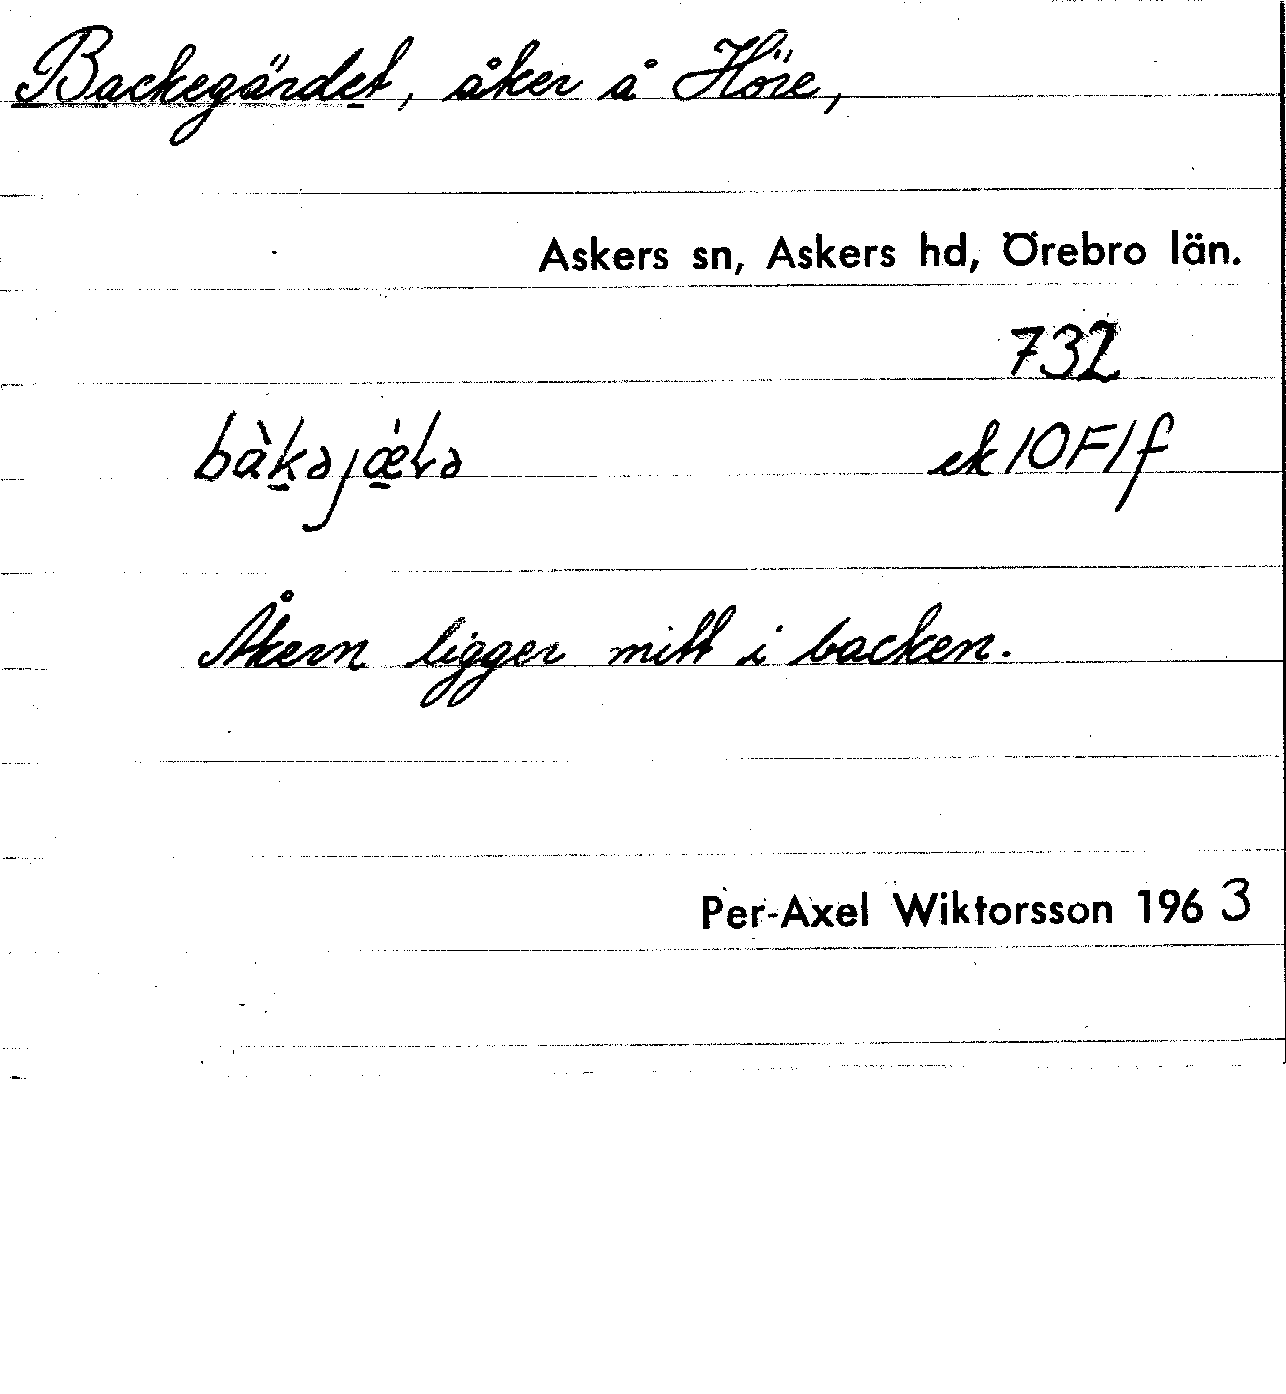 Backegärdet, åker å Höre,
Askers sn, Askers hd, Örebro län.
732
ek 10F1f
Åkern ligger mitt i backen.
Per-Axel Wiktorsson 1963